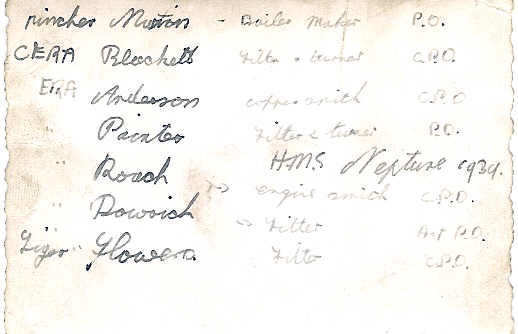 Pincher Martin - Boiler Maker P.O.
CERA Blackett Fitter & turner C.P.O.
ERA Anderson coppersmith C.P.O
" Painter Fitter & turner P.O.
" Roach HMS Neptune 1934.
" Dowrich -> engine smith C.P.O.
-> Fitter Act P.O.
" Flowers. Fitter C.P.O.